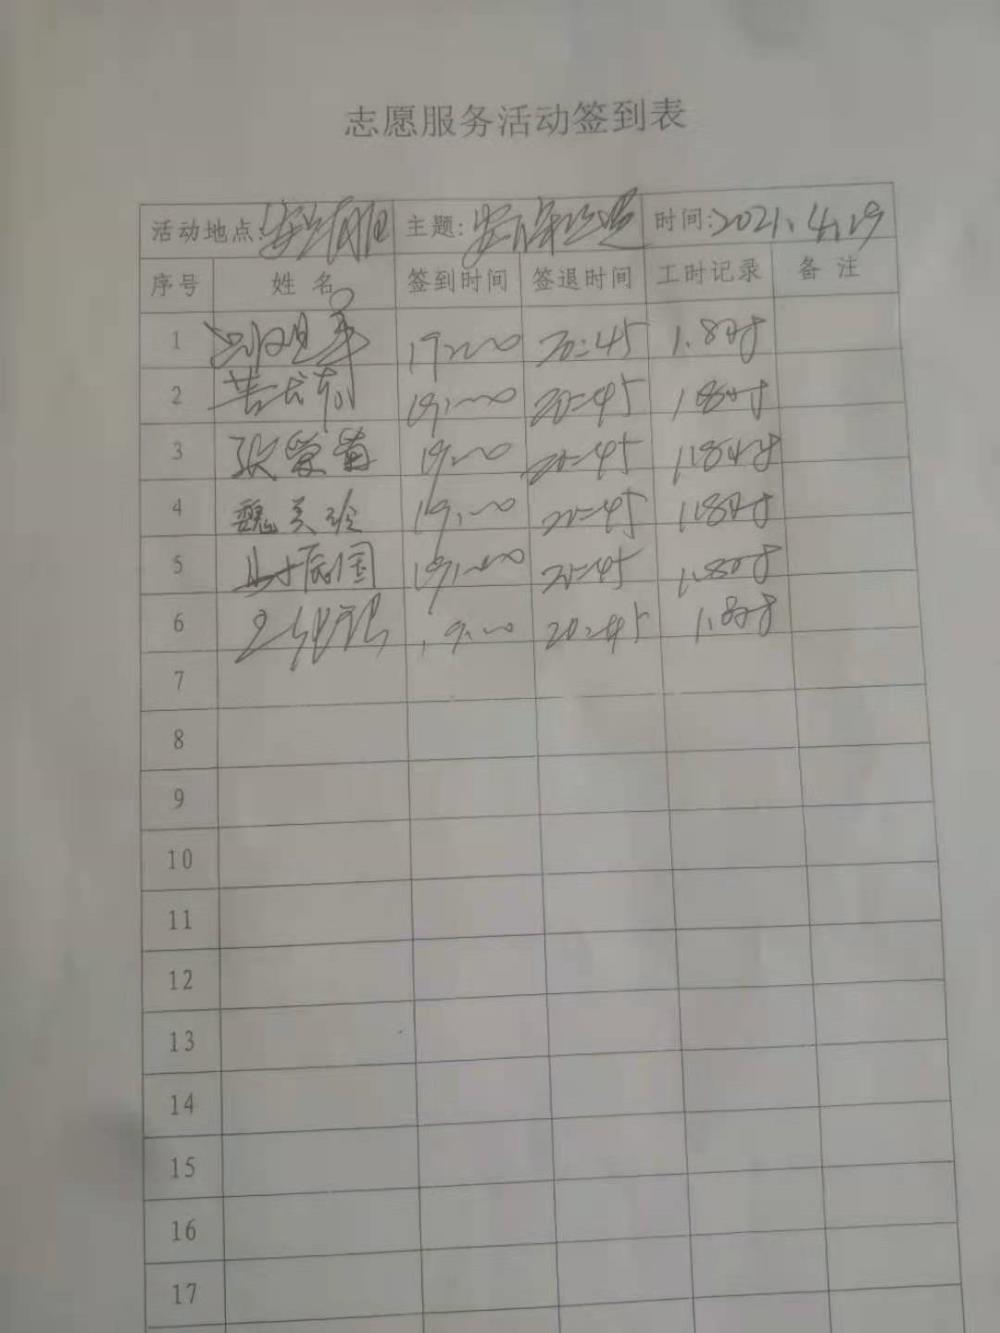 志愿服务活动签到表
活动地点: 主题: 时间:2021.4.19
序号 姓名 签到时间 签退时间 工时记录 备注
1 19:00 20:45 1.8时
2 19:00 20:45 1.8时
3 张爱菊 19:00 20:45 1.8时
4 魏美珍 19:00 20:45 1.8时
5 19:00 20:45 1.8时
6 19:00 20:45 1.8时
7
8
9
10
11
12
13
14
15
16
17